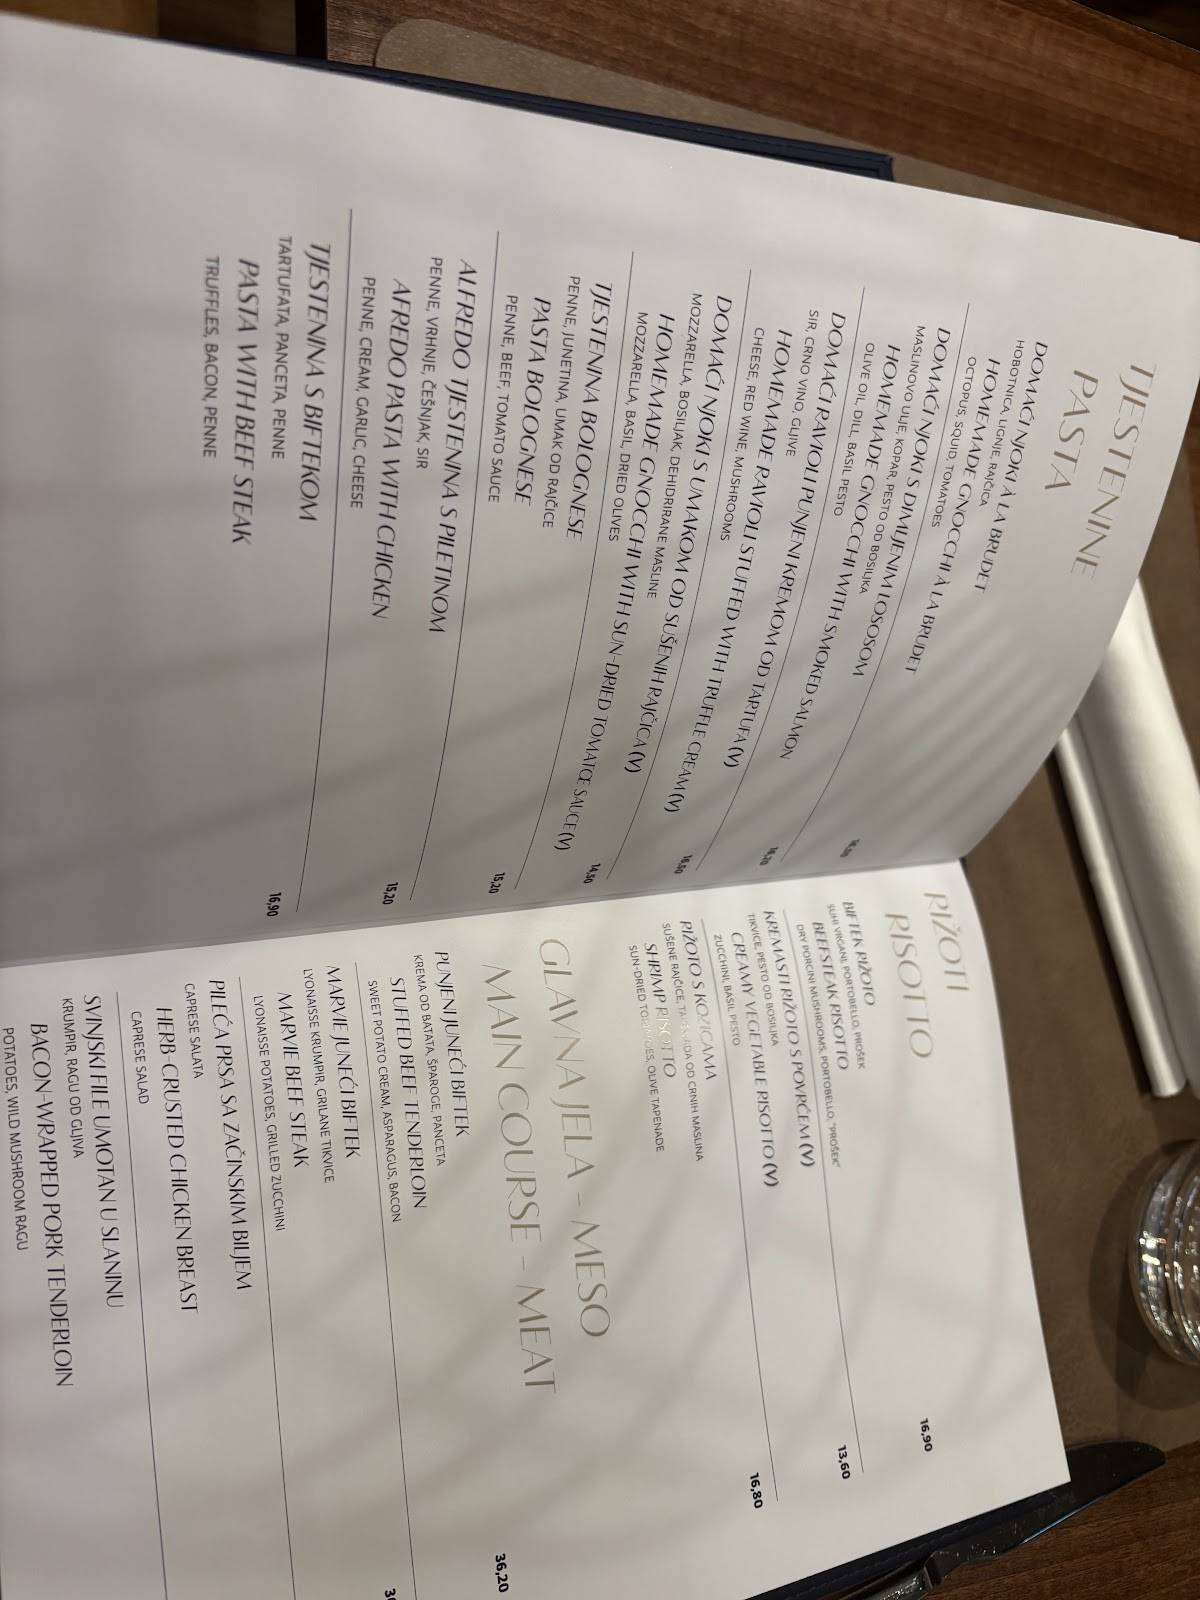 TJESTENINE
PASTA
DOMAĆI NJOKI À LA BRUDET
HOBOTNICA, LIGNJE, RAJČICA
HOMEMADE GNOCCHI À LA BRUDET
OCTOPUS, SQUID, TOMATOES
DOMAĆI NJOKI S DIMLJENIM LOSOSOM
MASLINOVO ULJE, KOPAR, PESTO OD BOSILJKA
HOMEMADE GNOCCHI WITH SMOKED SALMON
OLIVE OIL, DILL, BASIL PESTO
DOMAĆI RAVIOLI PUNJENI KREMOM OD TARTUFA (V)
SIR, CRNO VINO, GLJIVE
HOMEMADE RAVIOLI STUFFED WITH TRUFFLE CREAM (V)
CHEESE, RED WINE, MUSHROOMS
16,20
DOMAĆI NJOKI S UMAKOM OD SUŠENIH RAJČICA (V)
MOZZARELLA, BOSILJAK, DEHIDRIRANE MASLINE
16,50
HOMEMADE GNOCCHI WITH SUN-DRIED TOMATOE SAUCE (V)
MOZZARELLA, BASIL, DRIED OLIVES
14,50
TJESTENINA BOLOGNESE
PENNE, JUNETINA, UMAK OD RAJČICE
PASTA BOLOGNESE
PENNE, BEEF, TOMATO SAUCE
15,20
ALFREDO TJESTENINA S PILETINOM
PENNE, VRHNJE, ČEŠNJAK, SIR
AFREDO PASTA WITH CHICKEN
PENNE, CREAM, GARLIC, CHEESE
15,20
TJESTENINA S BIFTEKOM
TARTUFATA, PANCETA, PENNE
PASTA WITH BEEF STEAK
TRUFFLES, BACON, PENNE
16,90
RIŽOTI
RISOTTO
BIFTEK RIŽOTO
SUHI VRGANJI, PORTOBELLO, PROŠEK
BEEFSTEAK RISOTTO
DRY PORCINI MUSHROOMS, PORTOBELLO, "PROŠEK"
16,90
KREMASTI RIŽOTO S POVRĆEM (V)
TIKVICE, PESTO OD BOSILJKA
CREAMY VEGETABLE RISOTTO (V)
ZUCCHINI, BASIL PESTO
13,60
RIŽOTO S KOZICAMA
SUŠENE RAJČICE, TAPENADA OD CRNIH MASLINA
SHRIMP RISOTTO
SUN-DRIED TOMATOES, OLIVE TAPENADE
16,80
GLAVNA JELA - MESO
MAIN COURSE - MEAT
PUNJENI JUNEĆI BIFTEK
KREMA OD BATATA, ŠPAROGE, PANCETA
STUFFED BEEF TENDERLOIN
SWEET POTATO CREAM, ASPARAGUS, BACON
36,20
MARVIE JUNEĆI BIFTEK
LYONAISSE KRUMPIR, GRILANE TIKVICE
MARVIE BEEF STEAK
LYONAISSE POTATOES, GRILLED ZUCCHINI
PILEĆA PRSA SA ZAČINSKIM BILJEM
CAPRESE SALATA
HERB-CRUSTED CHICKEN BREAST
CAPRESE SALAD
SVINJSKI FILE UMOTAN U SLANINU
KRUMPIR, RAGU OD GLJIVA
BACON-WRAPPED PORK TENDERLOIN
POTATOES, WILD MUSHROOM RAGU